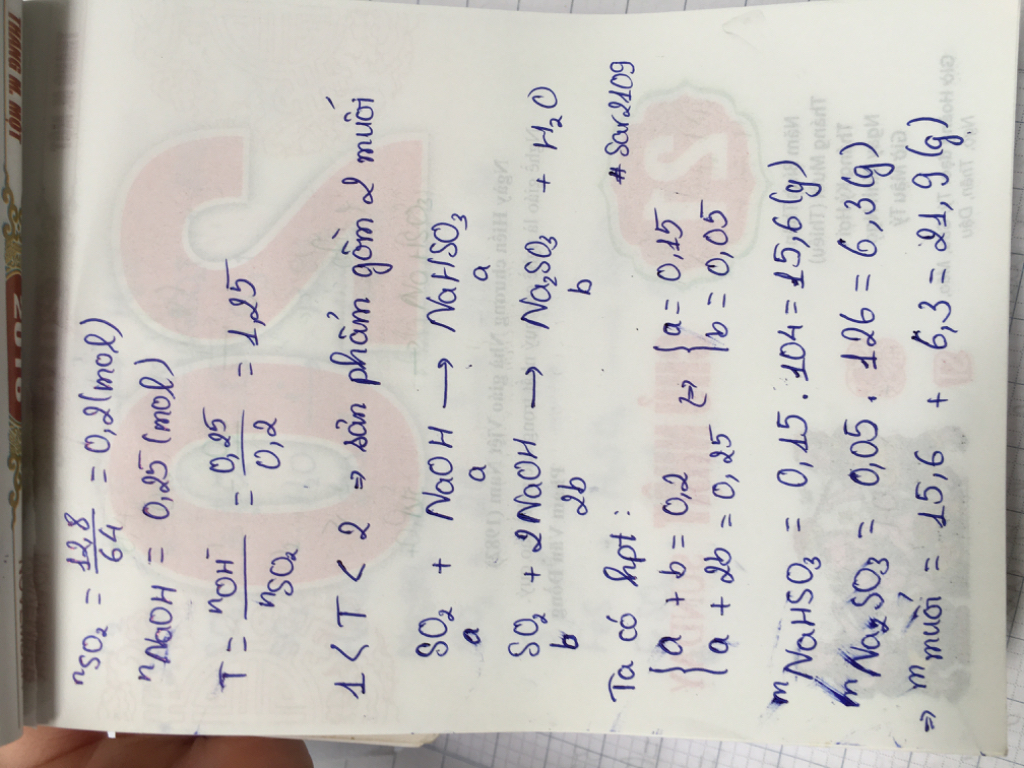 nSO₂ = 12,8/64 = 0,2 (mol)
nNaOH = 0,25 (mol)
T = nOH⁻/nSO₂ = 0,25/0,2 = 1,25
1 < T < 2 ⇒ sản phẩm gồm 2 muối
SO₂ + NaOH → NaHSO₃
a a a
SO₂ + 2NaOH → Na₂SO₃ + H₂O
b 2b b
Ta có hpt: # Sar2109
{a + b = 0,2 ⇔ {a = 0,15
{a + 2b = 0,25 {b = 0,05
mNaHSO₃ = 0,15 . 104 = 15,6 (g)
mNa₂SO₃ = 0,05 . 126 = 6,3 (g)
⇒ mmuối = 15,6 + 6,3 = 21,9 (g)
THÁNG M. MỘT